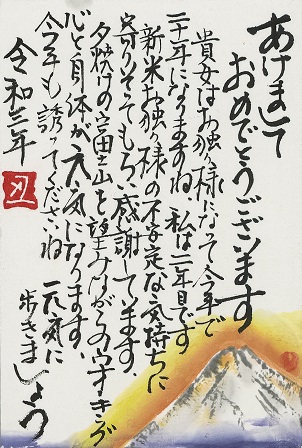 あけまして
おめでとうございます
貴女はお独り様になって今年で
二十年になりますね、私は二年目です
新米お独り様の不安定な気持ちに
寄りそってもらい感謝しています。
夕焼けの富士山を望みながらのウオーキングが
心と身体が元気になります。
今年も誘ってくださいね
元気に
歩きましょう
令和三年